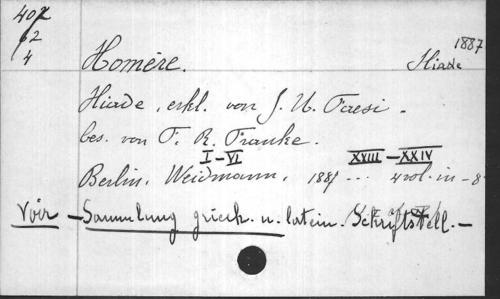 402
62
4
1887
Homère. Iliade
Iliade, erkl. von J. U. Faesi.
bes. von F. R. Franke.
I-VI XVIII-XXIV
Berlin, Weidmann, 1887 ... 4 vol. in-8
Voir - Sammlung griech. u. latein. Schriftstell. -